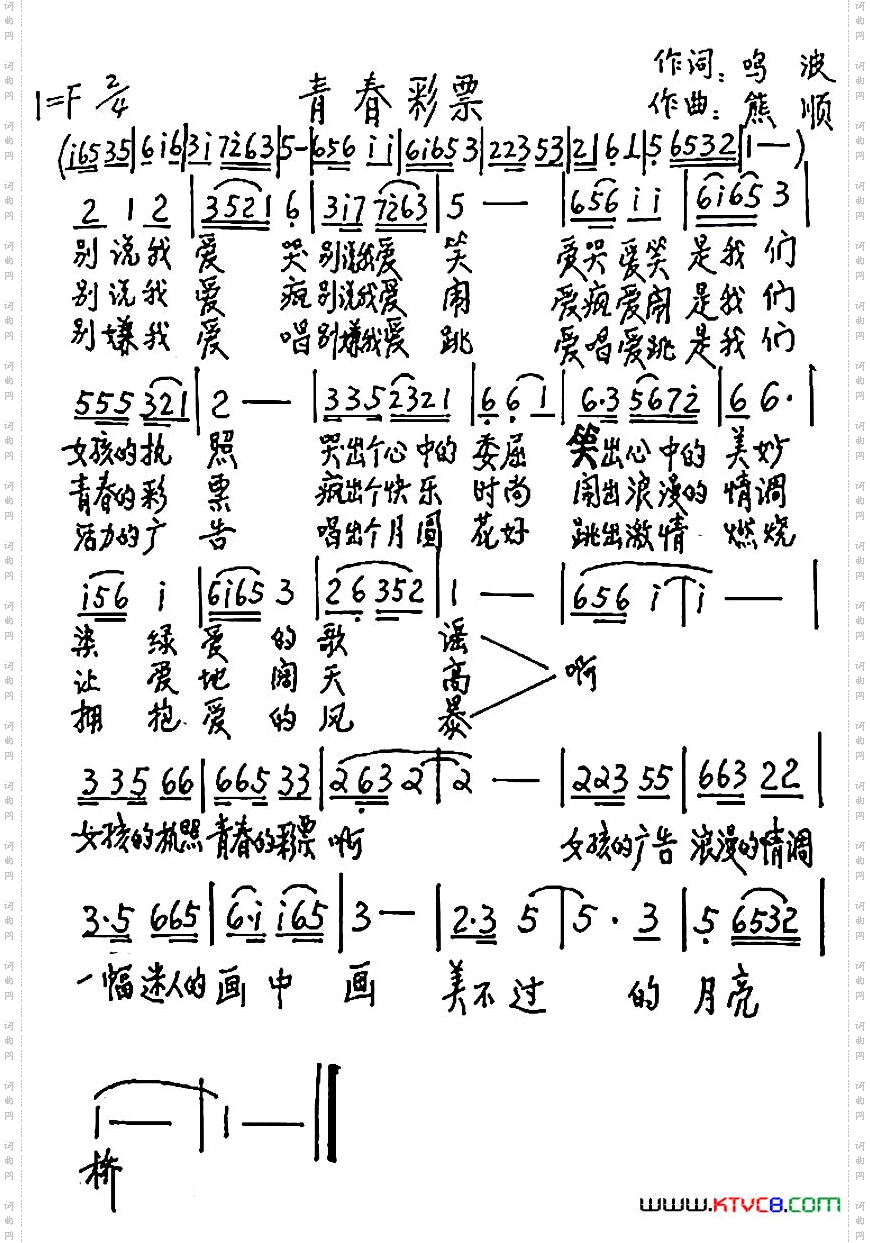 青春彩票
作词：鸣波
1=F 2/4
作曲：熊顺
(i6535|6i6|3i7i63|5-|656ii|6i653|22353|2161|56532|1—)
212|35216|3i77i63|5—|656ii|6i653|
别说我爱哭别说我爱笑 爱哭爱笑是我们
别说我爱疯别说我爱闹 爱疯爱闹是我们
别嫌我爱唱别嫌我爱跳 爱唱爱跳是我们
555321|2—|3352321|661|6·3567i|66·|
女孩的执照 哭出个心中的委屈 笑出心中的美妙
青春的彩票 疯出个快乐时尚 闹出浪漫的情调
活力的广告 唱出个月圆花好 跳出激情燃烧
i56i|6i653|26352|1—|656i|i—|
染绿爱的歌谣
让爱地阔天高 啊
拥抱爱的风暴
33566|66533|2632|2—|22355|66322|
女孩的执照青春的彩票啊 女孩的广告浪漫的情调
3·5665|6·ii65|3—|2·35|5·3|56532|
一幅迷人的画中画 美不过的月亮
1—|1—‖
桥
www.KTVC8.com
词曲网